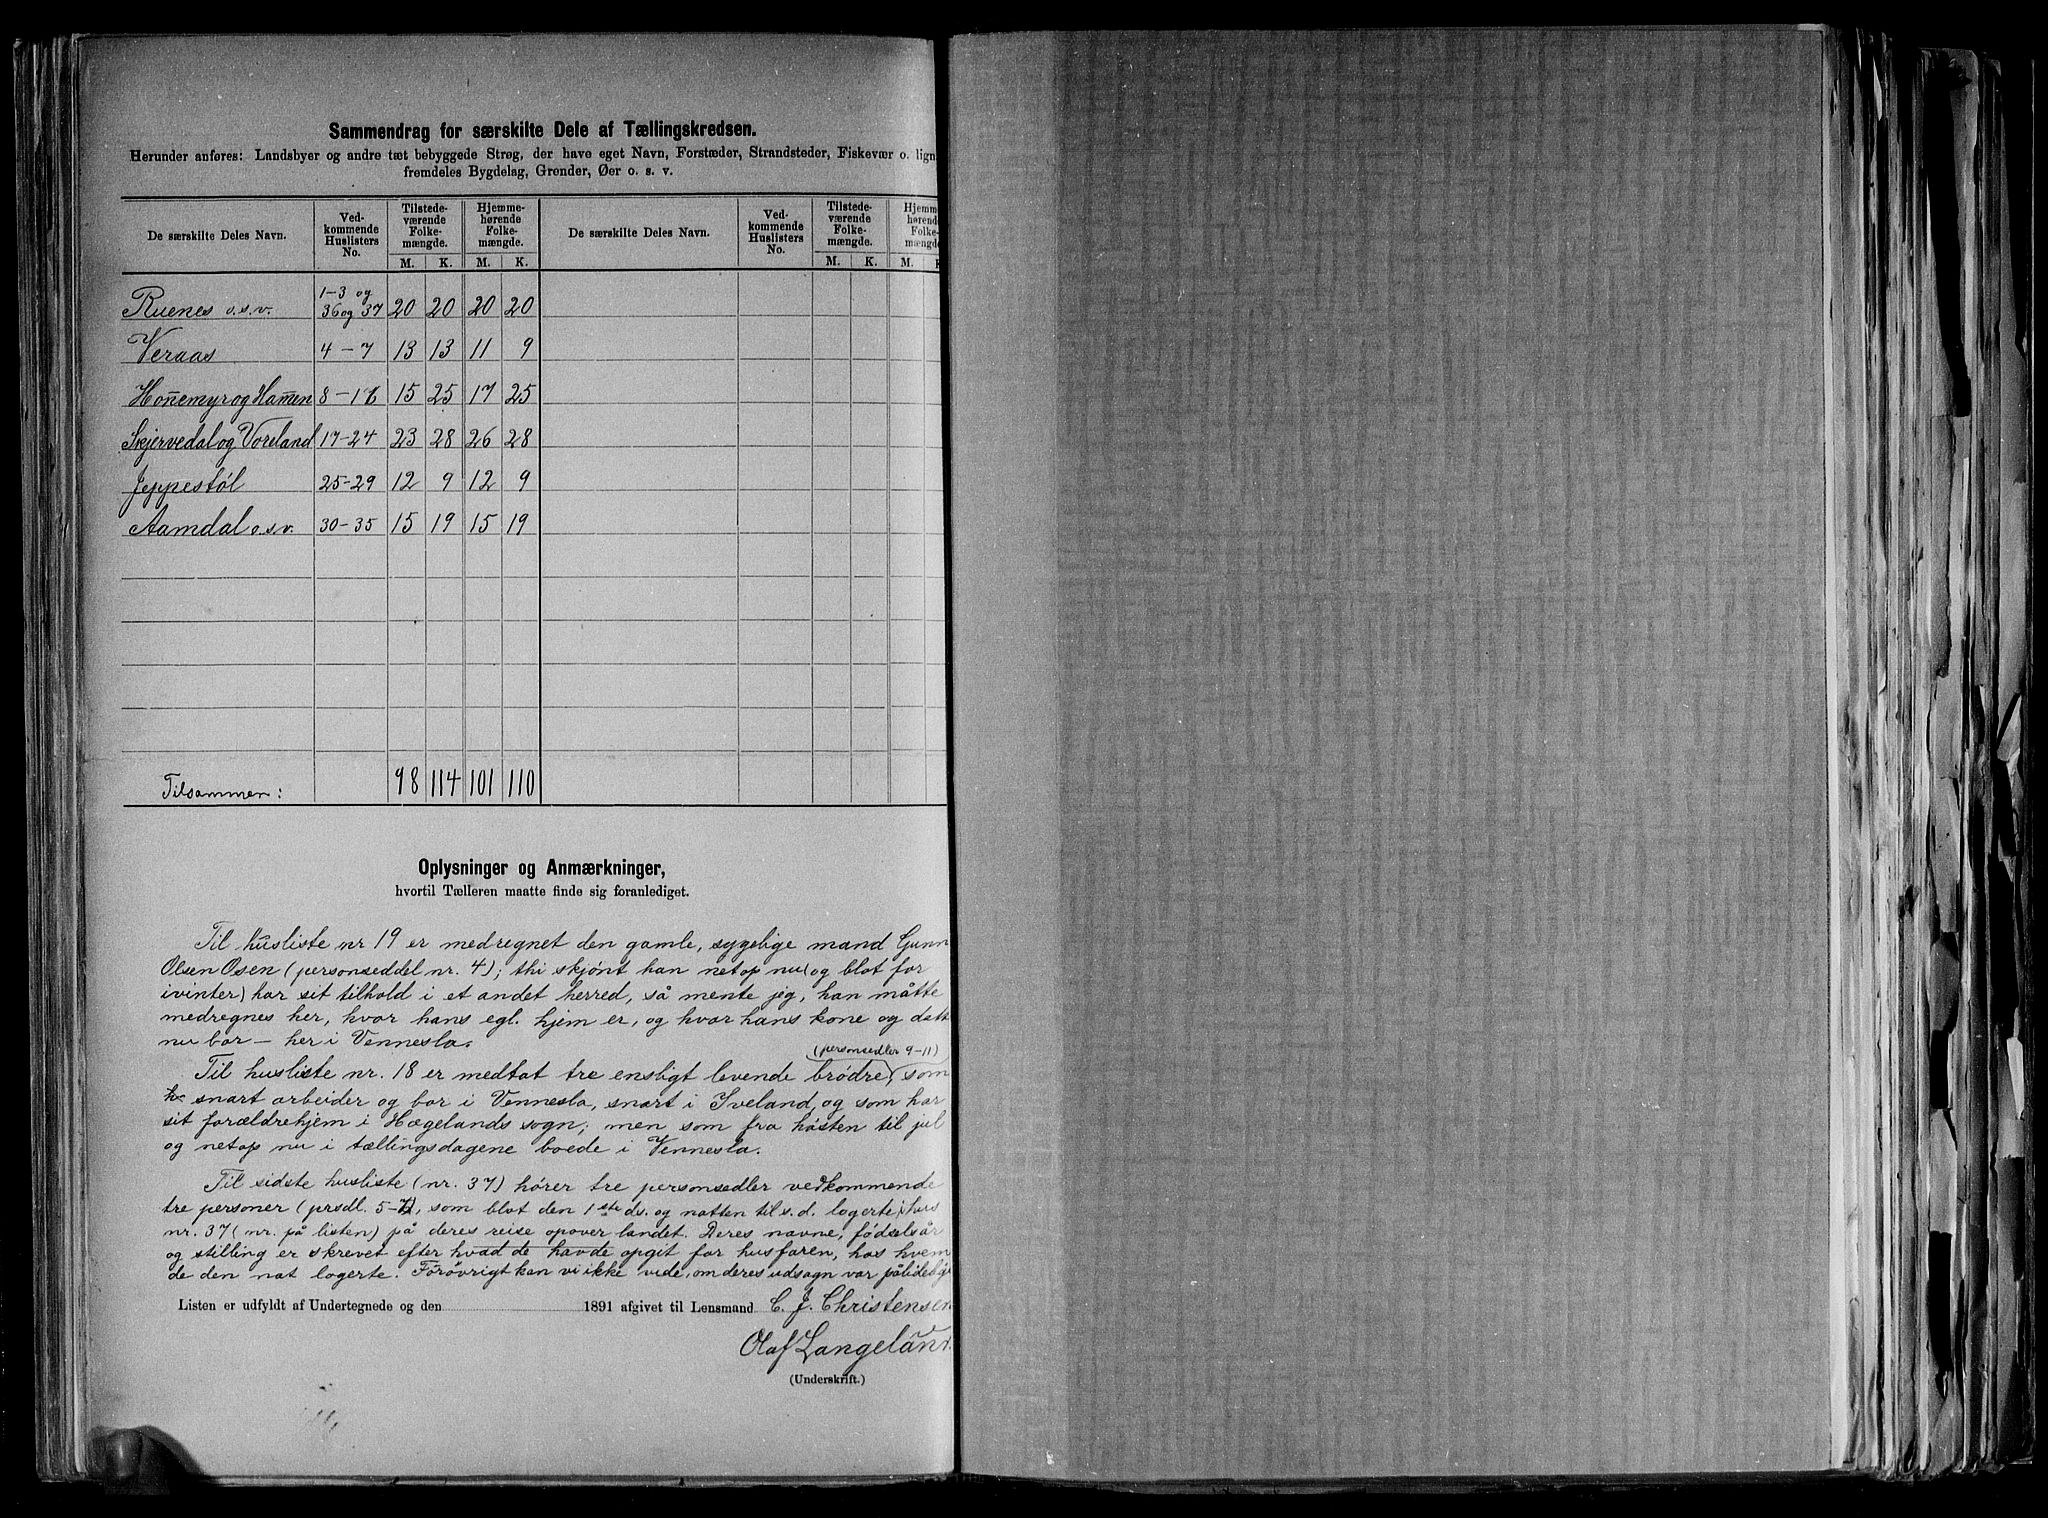 Sammendrag for særskilte Dele af Tællingskredsen.
Herunder anføres: Landsbyer og andre tæt bebyggede Strøg, der have eget Navn, Forstæder, Strandsteder, Fiskevær o. lign
fremdeles Bygdelag, Grender, Øer o. s. v.
De særskilte Deles Navn. Ved-kommende Huslisters No. Tilstede-værende Folke-mængde. Hjemme-hørende Folke-mængde. De særskilte Deles Navn. Ved-kommende Huslisters No. Tilstede-værende Folke-mængde. Hjemme-hørende Folke-mængde.
M. K. M. K. M. K. M. K.
1-3 og
Ruenes o.s.v. 36 og 37 20 20 20 20
Veraas 4-7 13 13 11 9
Hon̅emyr og Ham̅en 8-16 15 25 17 25
Skjervedal og Voreland 17-24 23 28 26 28
Jeppestøl 25-29 12 9 12 9
Aamdal o.s.v. 30-35 15 19 15 19
Tilsammen: 98 114 101 110
Oplysninger og Anmærkninger,
hvortil Tælleren maatte finde sig foranlediget.
Til husliste nr 19 er medregnet den gamle, sygelige mand Gunn
Olsen Osen (personseddel nr. 4); thi skjønt han netop nu (og blot for
ivinter) har sit tilhold i et andet herred, så mente jeg, han måtte
medregnes her, hvor hans egl. hjem er, og hvor hans kone og datt
nu bor – her i Vennesla.
(personsedler 9-11)
Til husliste nr. 18 er medtat tre ensligt levende brødre, som
snart arbeider og bor i Vennesla, snart i Iveland, og som har
sit forældrehjem i Hægelands sogn; men som fra høsten til jul
og netop nu i tællingsdagene boede i Vennesla.
Til sidste husliste (nr. 37) hører tre personsedler vedkommende
tre personer (prsdl. 5-7), som blot den 1ste ds. og natten til s. d. logerte i hus
nr. 37 (nr. på listen) på deres reise opover landet. Deres navne, fødselsår
og stilling er skrevet efter hvad de havde opgit for husfaren, hos hvem
de den nat logerte. Forøvrigt kan vi ikke vide, om deres udsagn var pålideligt
Listen er udfyldt af Undertegnede og den 1891 afgivet til Lensmand C. J. Christensen
Olaf Langeland.
(Underskrift.)